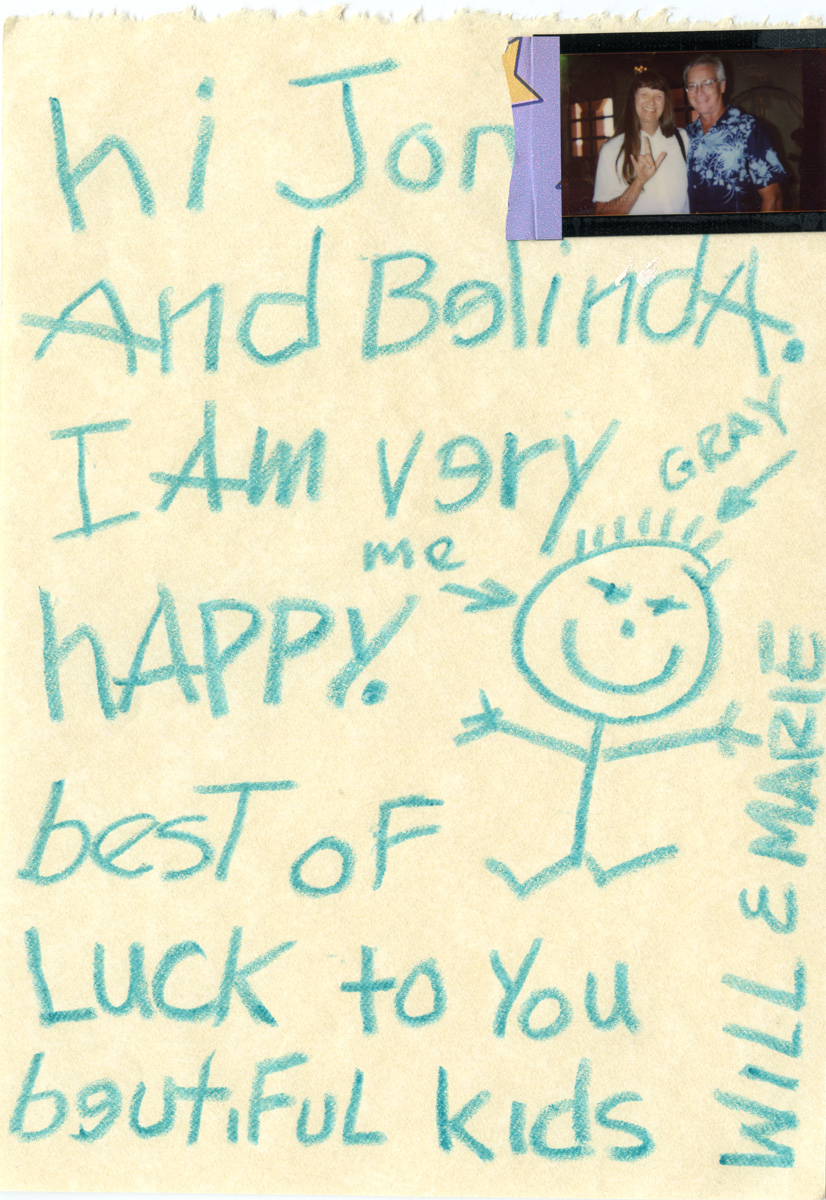 hi Jon
And BelindA.
I AM very
GRAY
me
hAPPY.
besT oF
Luck to You
beutiFuL kids
WILL & MARIE